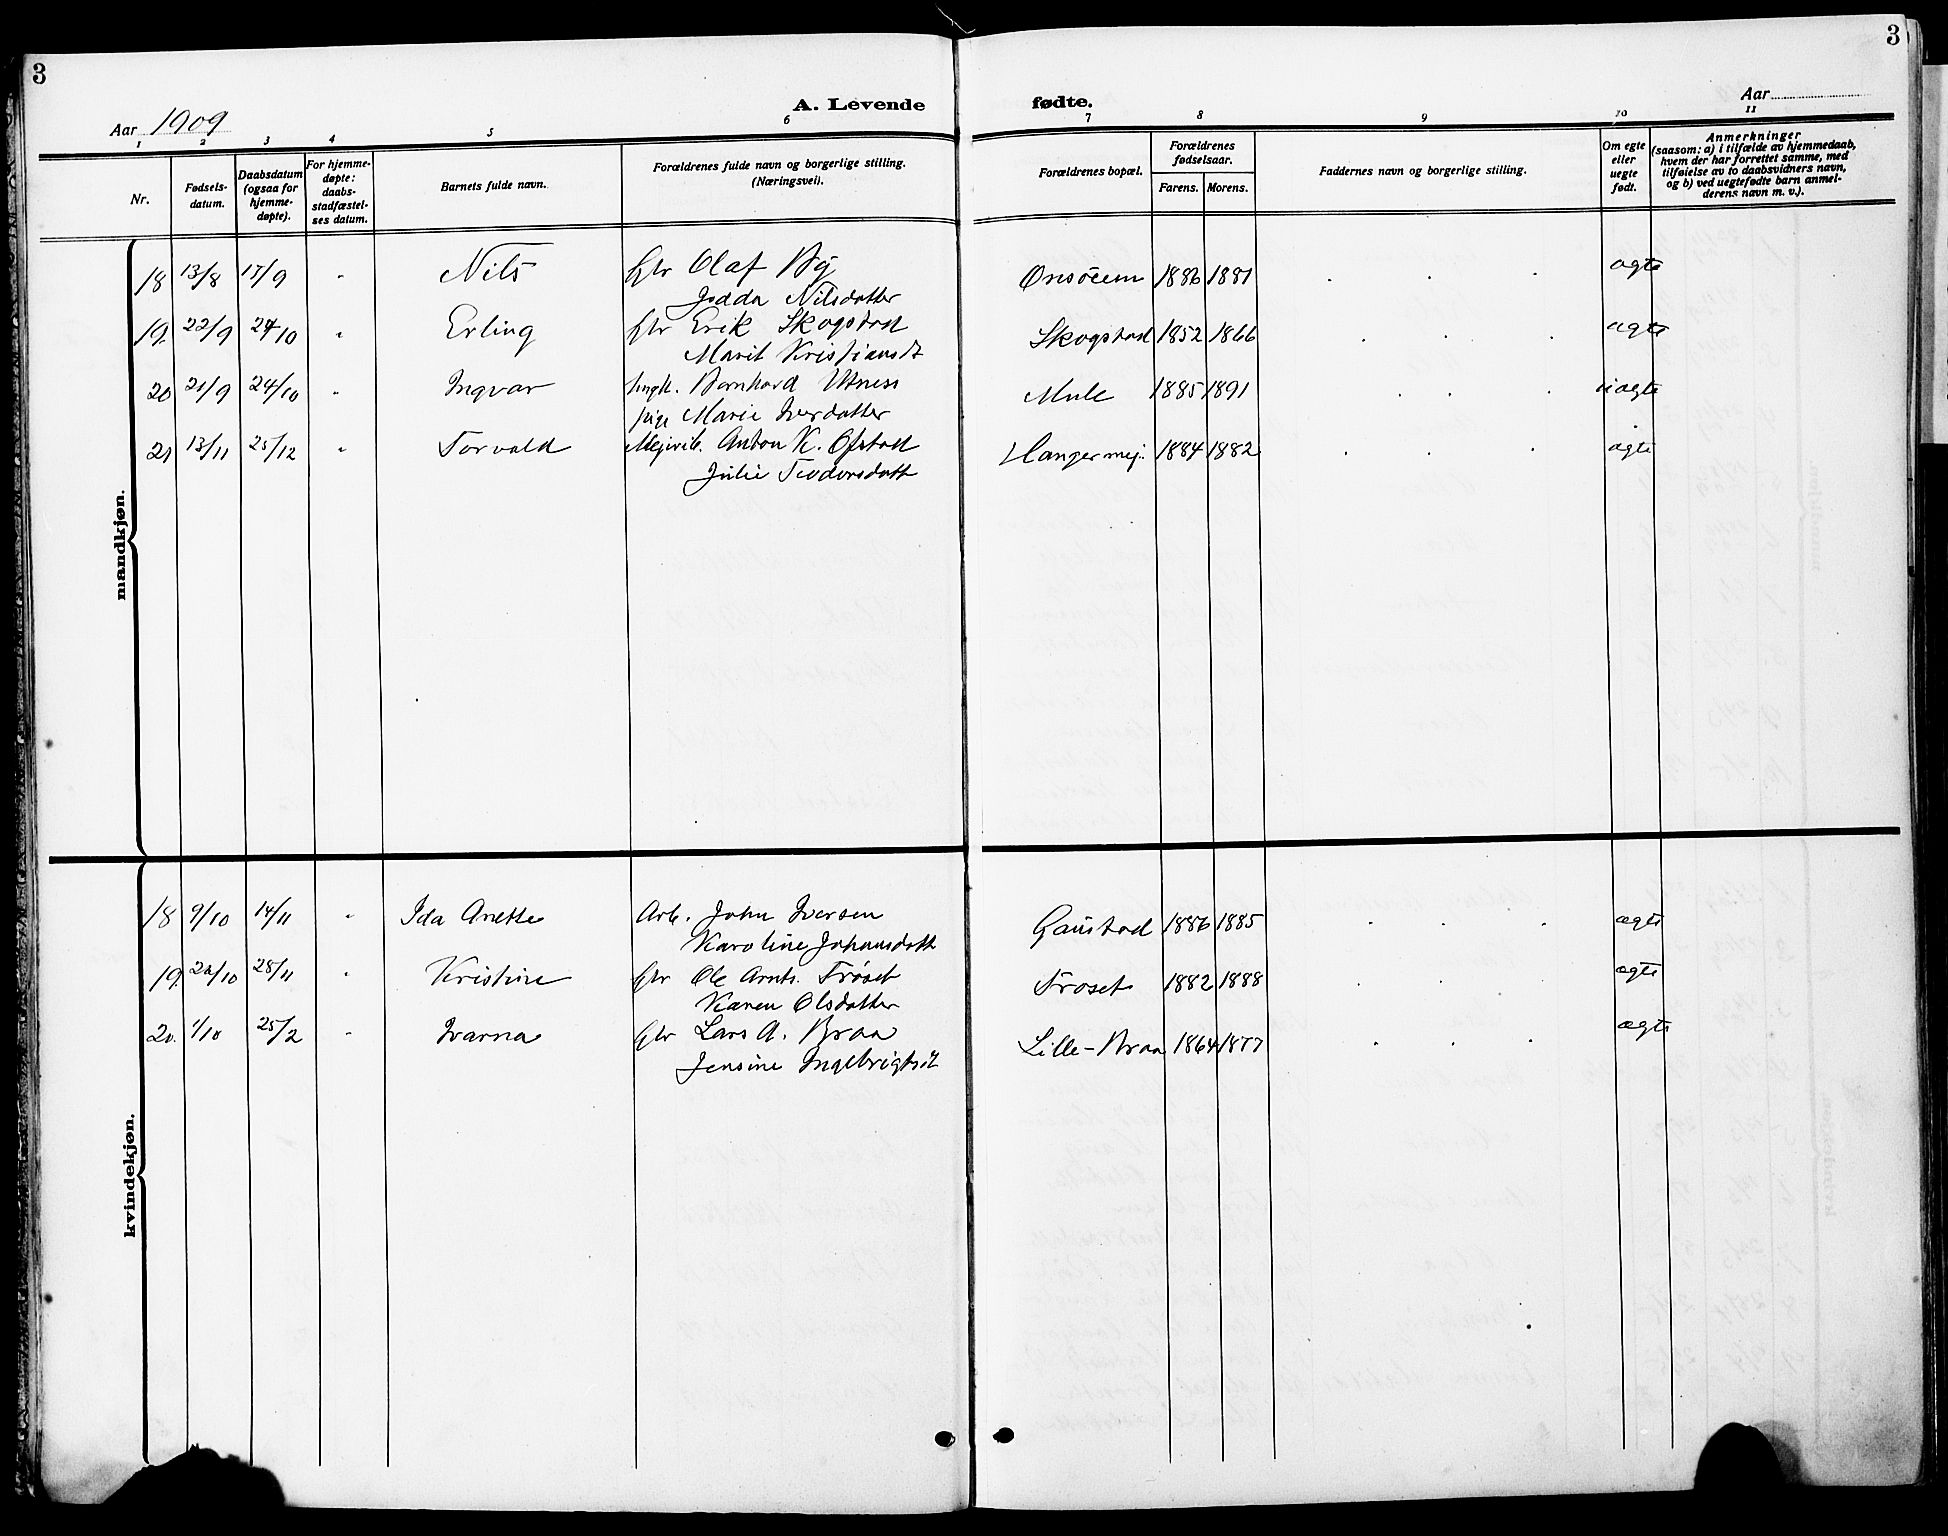 3
3
A. Levende fødte.
Aar 1909
Aar
1 2 3 4 5 6 7 8 9 10 11
Nr.
Fødsels-
datum.
Daabsdatum
(ogsaa for
hjemme-
døpte).
For hjemme-
døpte:
daabs-
stadfæstel-
ses datum.
Barnets fulde navn.
Forældrenes fulde navn og borgerlige stilling.
(Næringsvei).
Forældrenes bopæl.
Forældrenes
fødselsaar.
Farens. Morens.
Faddernes navn og borgerlige stilling.
Om egte
eller
uegte
født.
Anmerkninger
(saasom: a) i tilfælde av hjemmedaab,
hvem der har forrettet samme, med
tilføielse av to daabsvidners navn,
og b) ved uegtefødte barn anmel-
derens navn m. v.).
mandkjøn.
18 13/8 17/9 " Nils Gbr Olaf By 1886 1881 ægte
Nilsdatter
19. 22/9 24/10 " Erling Gbr Erik Skogstad Skogstad 1852 1866 ægte
Marit Kristiansdt
20 21/9 24/10 " Ingvar Ungk. Bernhard Utness Mule 1885 1891 uægte
pige Marie Iverdatter
21 13/11 25/12 " Torvald Mejerib. Anton K. Ofstad Hangermej. 1884 1882 ægte
Julie Teodorsdatt
kvindekjøn.
18 9/10 14/11 " Ida Anette Arb. John Iversen Gaustad 1886 1885 ægte
Karoline Johansdatt
19. 22/10 28/11 " Kristine Gbr Ole Arnts. Trøset Trøset 1882 1888 ægte
Karen Olsdatter
20. 1/10 25/2 " Ivarna Gbr Lars A. Braa Lille-Braa 1864 1877 ægte
Jensine Ingebrigtsdt